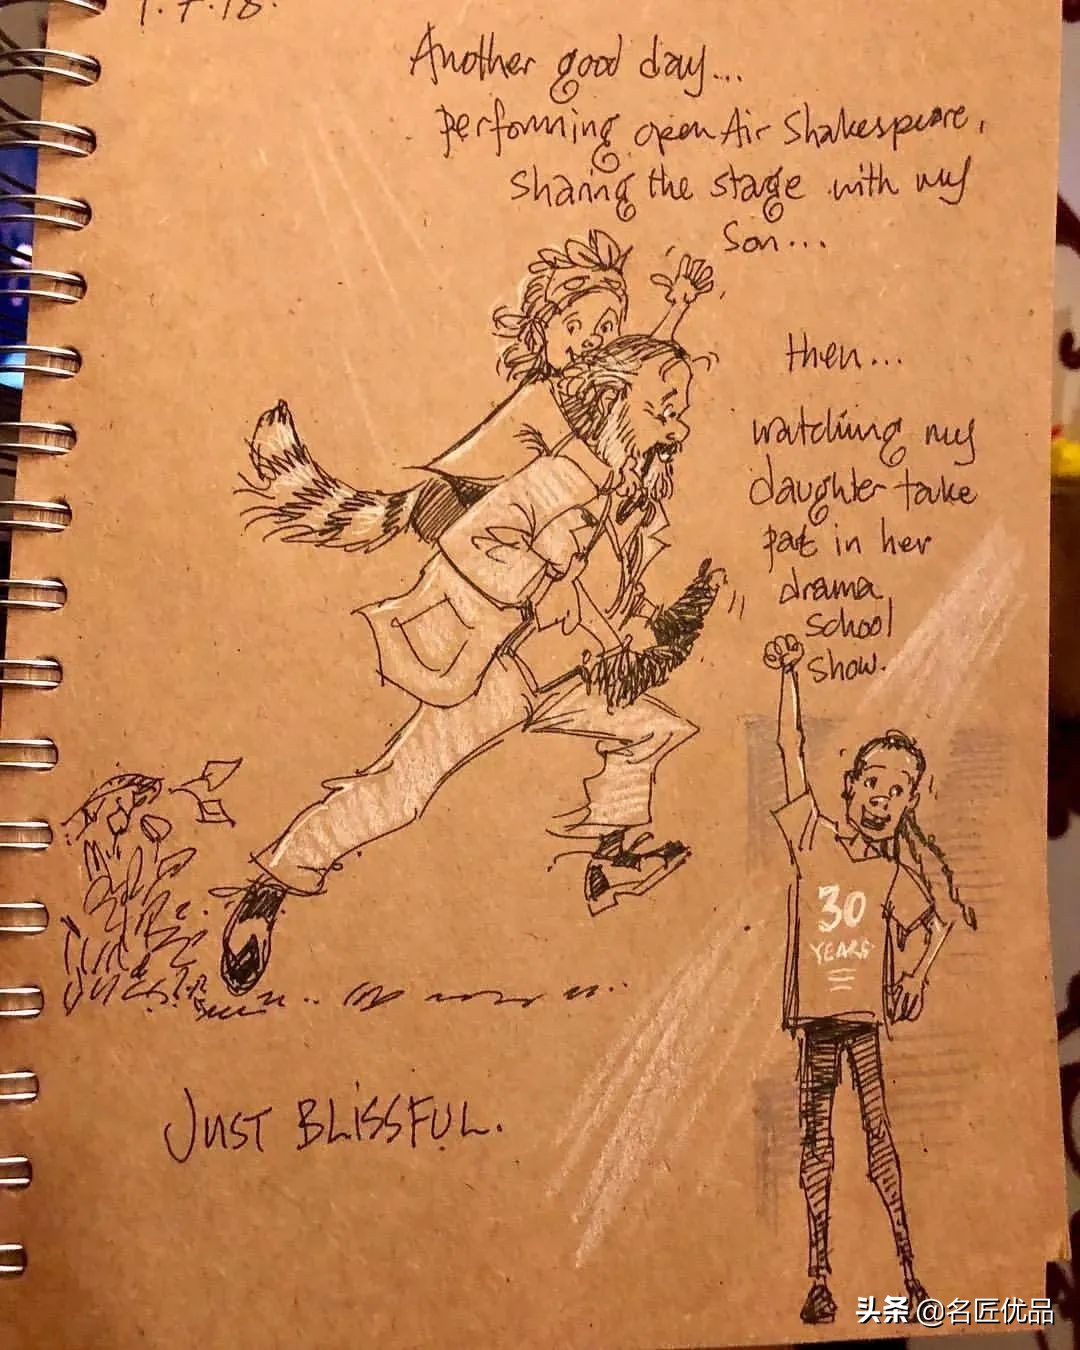 1.7.18.
Another good day...
performing open Air Shakespeare,
sharing the stage with my
Son...
then...
watching my
daughter take
part in her
drama
school
show.
30
YEARS
JUST BLISSFUL.
头条 @名匠优品